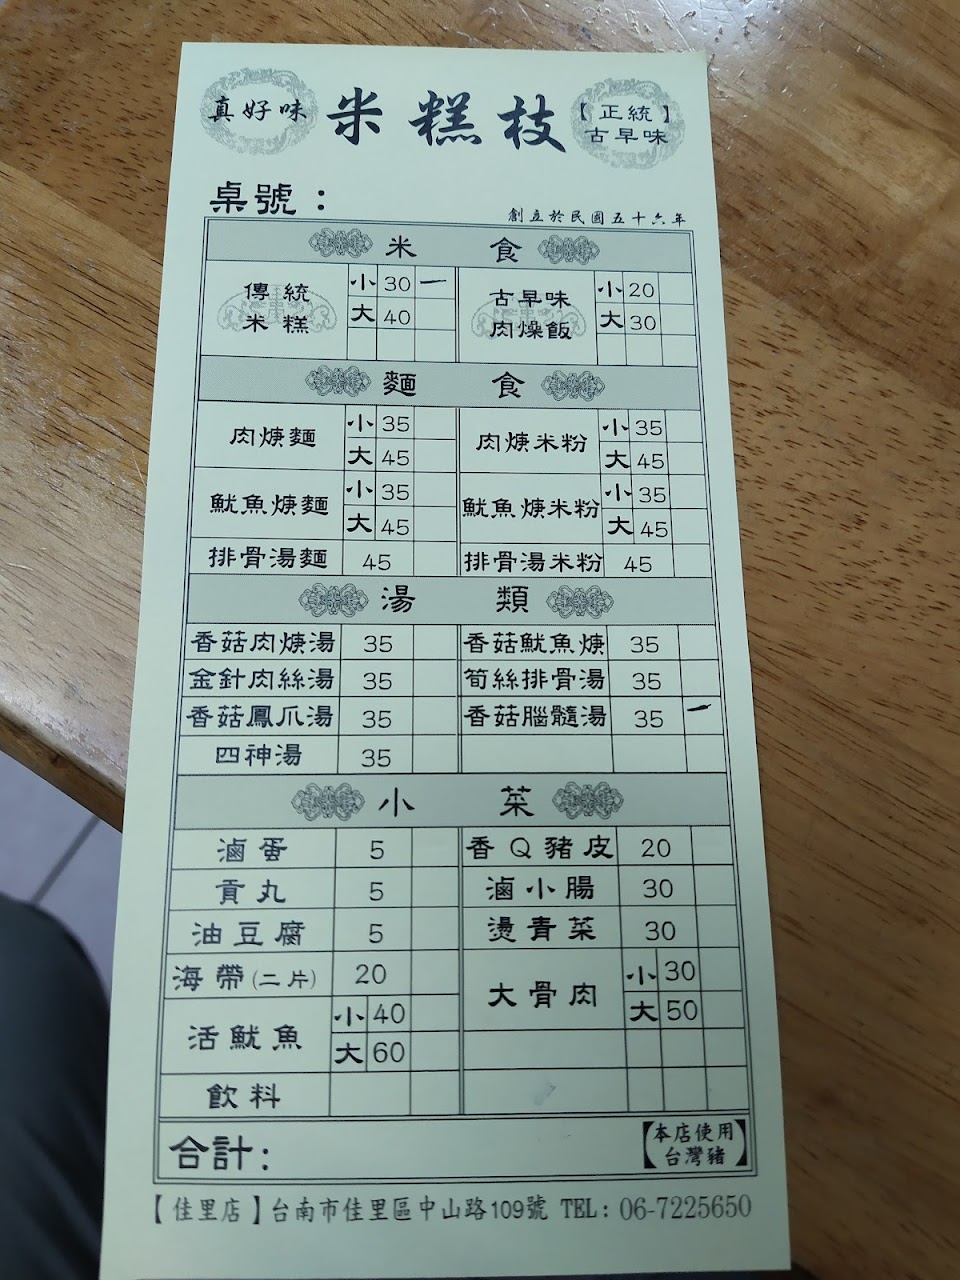 真好味 米糕枝 【正統】
古早味
桌號：
創立於民國五十六年
米食
傳統米糕 小 30 一
大 40
古早味肉燥飯 小 20
大 30
麵食
肉焿麵 小 35
大 45
肉焿米粉 小 35
大 45
魷魚焿麵 小 35
大 45
魷魚焿米粉 小 35
大 45
排骨湯麵 45
排骨湯米粉 45
湯類
香菇肉焿湯 35
香菇魷魚焿 35
金針肉絲湯 35
筍絲排骨湯 35
香菇鳳爪湯 35
香菇腦髓湯 35 一
四神湯 35
小菜
滷蛋 5
香Q豬皮 20
貢丸 5
滷小腸 30
油豆腐 5
燙青菜 30
海帶(二片) 20
大骨肉 小 30
大 50
活魷魚 小 40
大 60
飲料
合計：
【本店使用
台灣豬】
【佳里店】台南市佳里區中山路109號 TEL：06-7225650